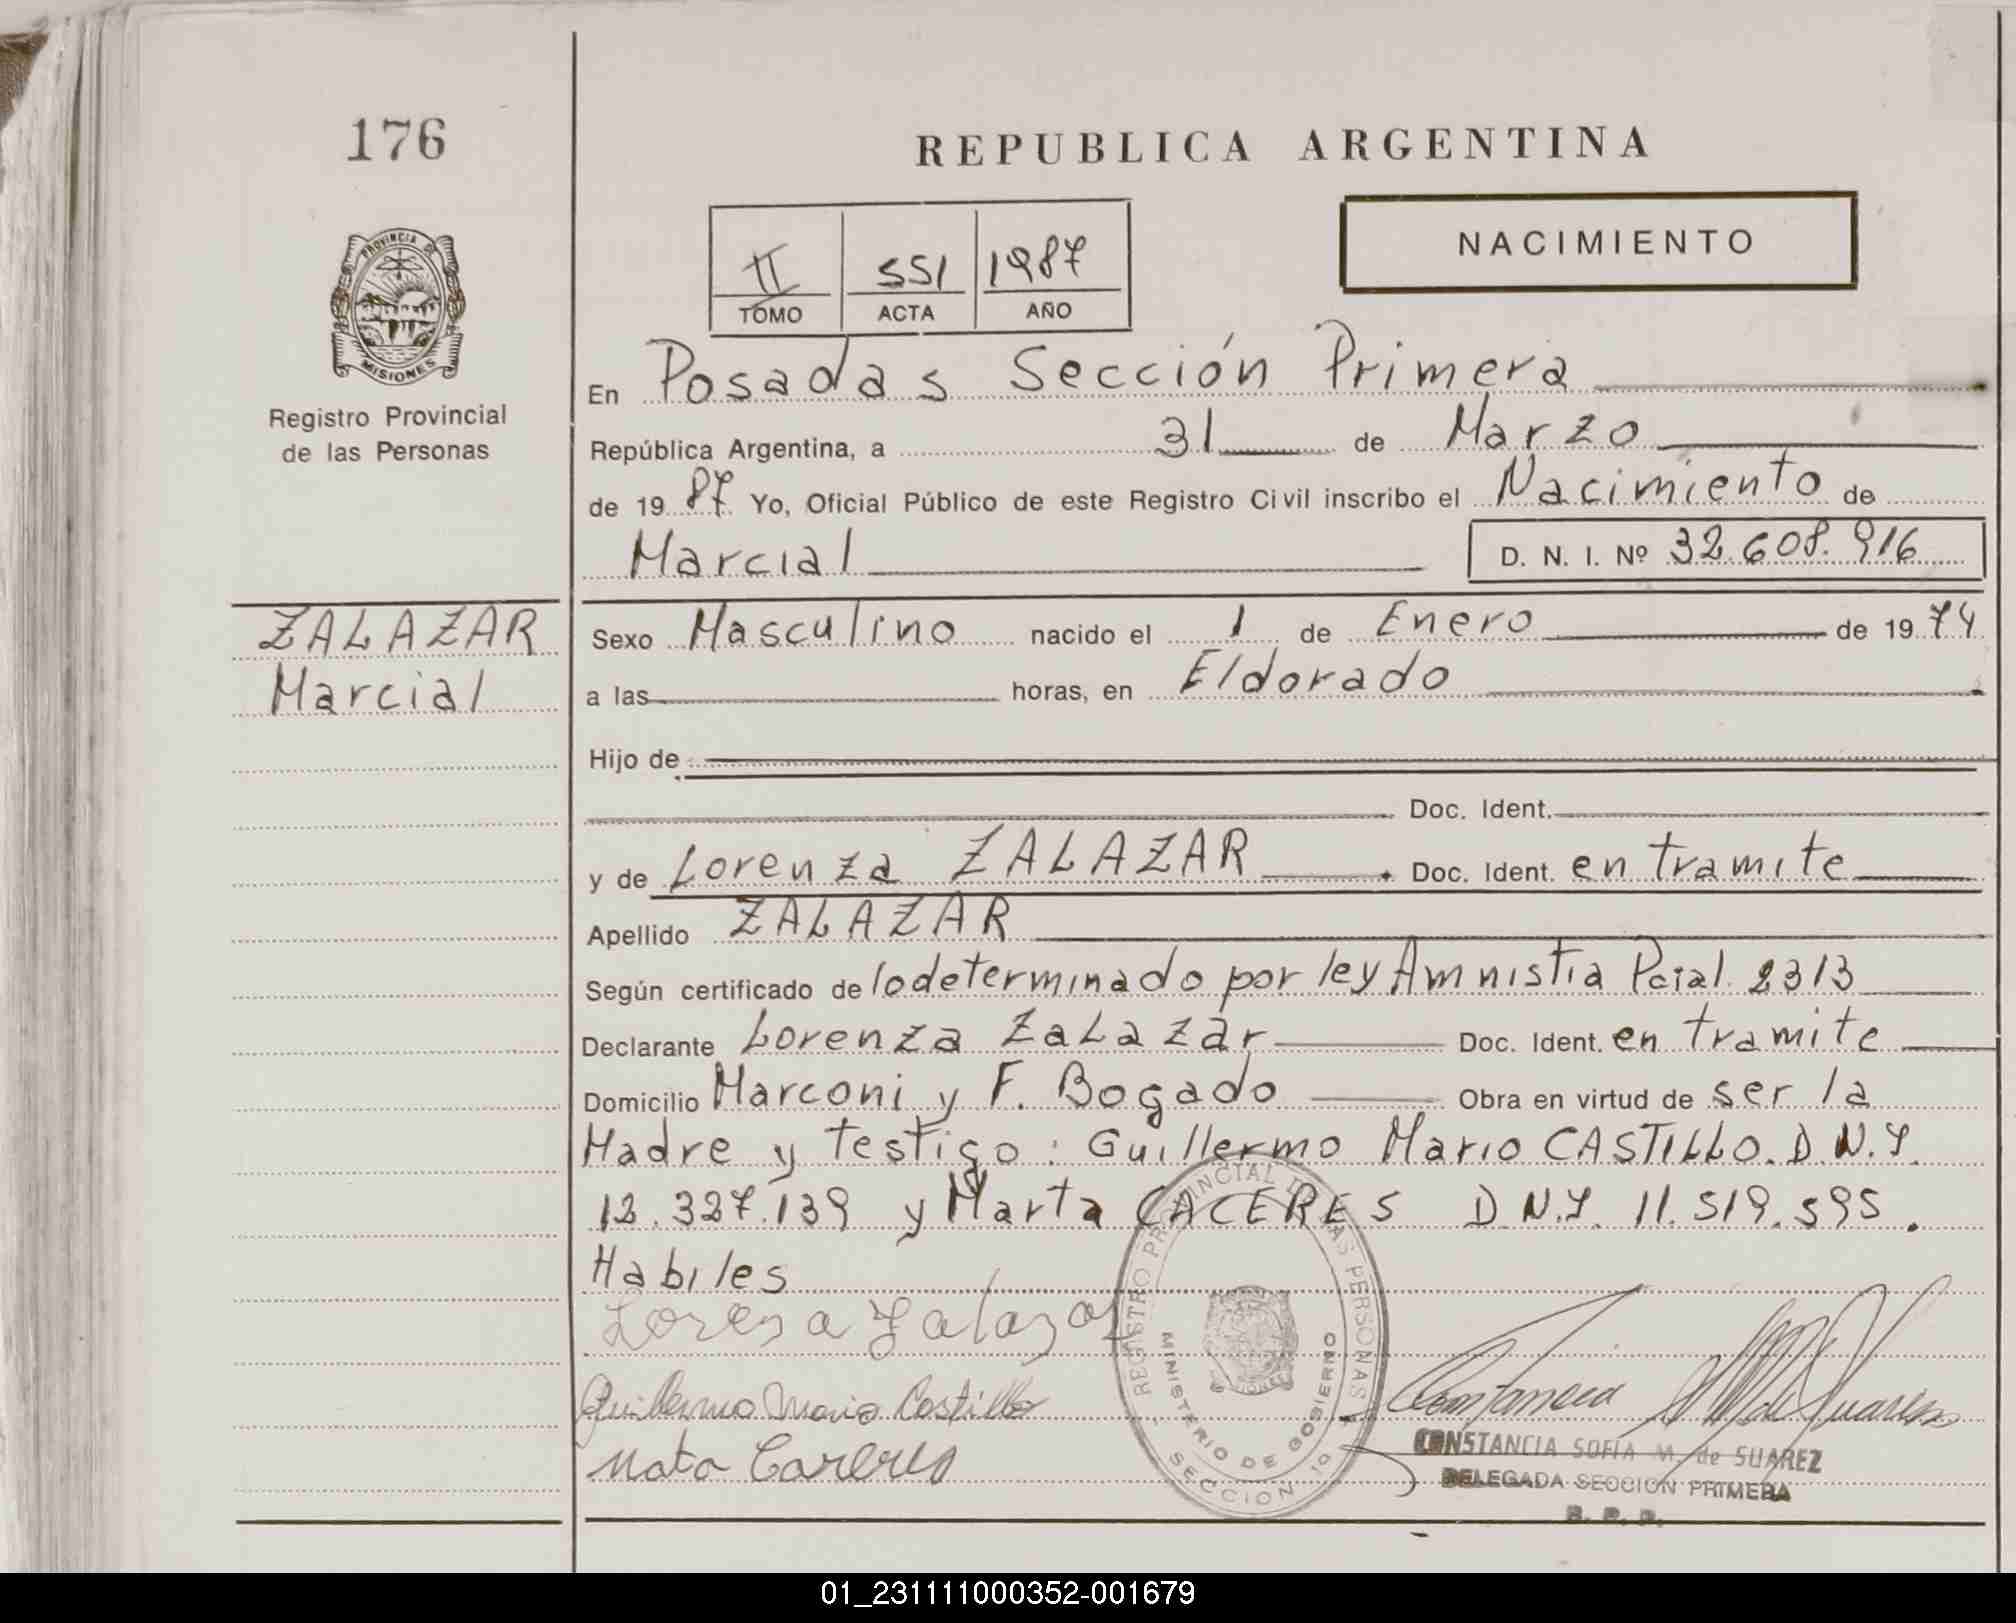 176
REPUBLICA ARGENTINA
NACIMIENTO
II 551 1987
TOMO ACTA AÑO
PROVINCIA DE
MISIONES
Registro Provincial
de las Personas
En Posadas Sección Primera
República Argentina, a 31 de Marzo
de 19 87 Yo, Oficial Público de este Registro Civil inscribo el Nacimiento de
Marcial D. N. I. Nº 32.608.916
ZALAZAR
Marcial
Sexo Masculino nacido el 1 de Enero de 19 74
a las horas, en Eldorado
Hijo de
Doc. Ident.
y de Lorenza ZALAZAR Doc. Ident. en tramite
Apellido ZALAZAR
Según certificado de lo determinado por ley Amnistia Pcial. 2313
Declarante Lorenza ZaLazar Doc. Ident. en tramite
Domicilio Marconi y F. Bogado Obra en virtud de ser la
Madre y testigo: Guillermo Mario CASTILLO. D.N.I.
12.327.139 y Marta CACERES D.N.I. 11.519.595.
Habiles
Lorensa Zalazar
Guillermo Mario Castillo
Marta Caceres
REGISTRO PROVINCIAL DE LAS PERSONAS
MINISTERIO DE GOBIERNO
SECCION 1a
Constancia M de Suarez
CONSTANCIA SOFIA M. de SUAREZ
DELEGADA SECCION PRIMERA
R. P. P.
01_231111000352-001679